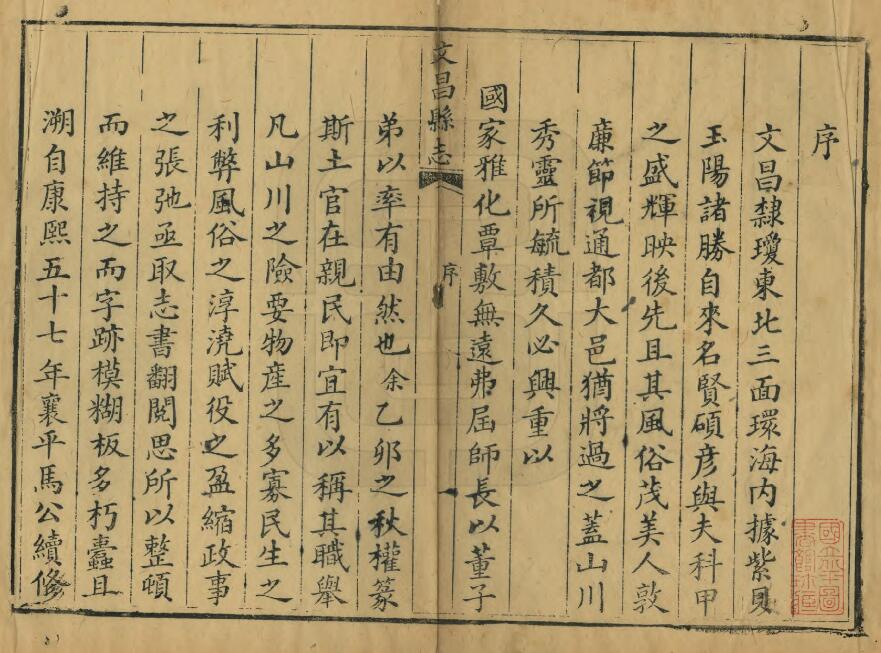 序
文昌隸瓊東北三面環海内據紫貝
玉陽諸勝自來名賢碩彦與夫科甲
之盛輝映後先且其風俗茂美人敦
廉節視通都大邑猶將過之蓋山川
秀靈所毓積久必興重以
國家雅化覃敷無遠弗屆師長以董子
文昌縣志
序
一
弟以率有由然也余乙卯之秋權篆
斯土官在親民即宜有以稱其職舉
凡山川之險要物產之多寡民生之
利弊風俗之淳澆賦役之盈縮政事
之張弛亟取志書翻閱思所以整頓
而維持之而字跡模糊板多朽蠹且
溯自康熙五十七年襄平馬公續修